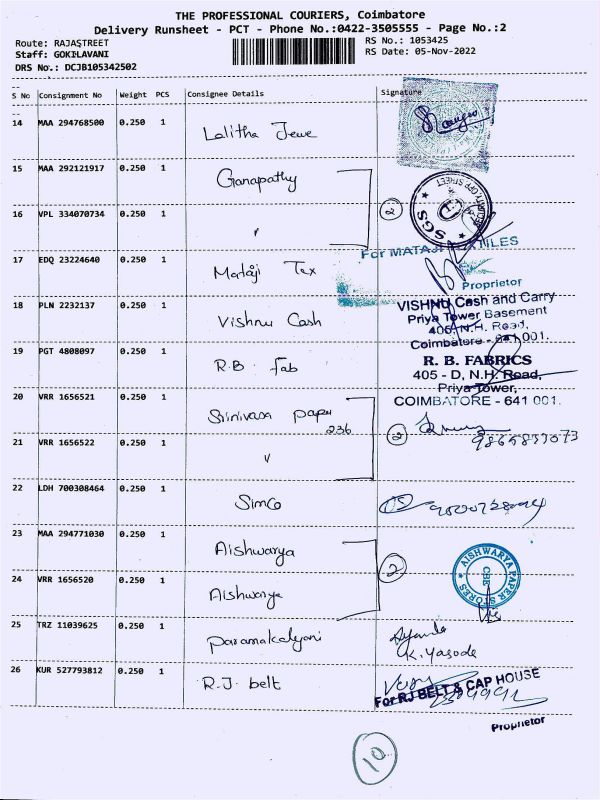 THE PROFESSIONAL COURIERS, Coimbatore
Delivery Runsheet - PCT - Phone No.:0422-3505555 - Page No.:2
Route: RAJASTREET
RS No.: 1053425
Staff: GOKILAVANI
RS Date: 05-Nov-2022
DRS No.: DCJB105342502
S No Consignment No Weight PCS Consignee Details Signature
14 MAA 294768500 0.250 1 Lalitha Jewe
15 MAA 292121917 0.250 1 Ganapathy
SGS
16 VPL 334070734 0.250 1 " 2
For MATAJI TEXTILES
17 EDQ 23224640 0.250 1 Mataji Tex
Proprietor
18 PLN 2232137 0.250 1 Vishnu Cash
VISHNU Cash and Carry
Priya Tower Basement
405 N.H. Road,
Coimbatore - 641 001.
19 PGT 4808097 0.250 1 R.B. Fab
R. B. FABRICS
405 - D, N.H. Road,
Priya Tower,
COIMBATORE - 641 001.
20 VRR 1656521 0.250 1 Srinivasa paper
236
2
21 VRR 1656522 0.250 1 "
22 LDH 700308464 0.250 1 Simco
23 MAA 294771030 0.250 1 Aishwarya
2
AISHWARYA PAPER STORES
CBE
24 VRR 1656520 0.250 1 Aishwarya
25 TRZ 11039625 0.250 1 Paramakalyani
K. Yasoda
26 KUR 527793812 0.250 1 R.J. belt
For RJ BELT & CAP HOUSE
Proprietor
10